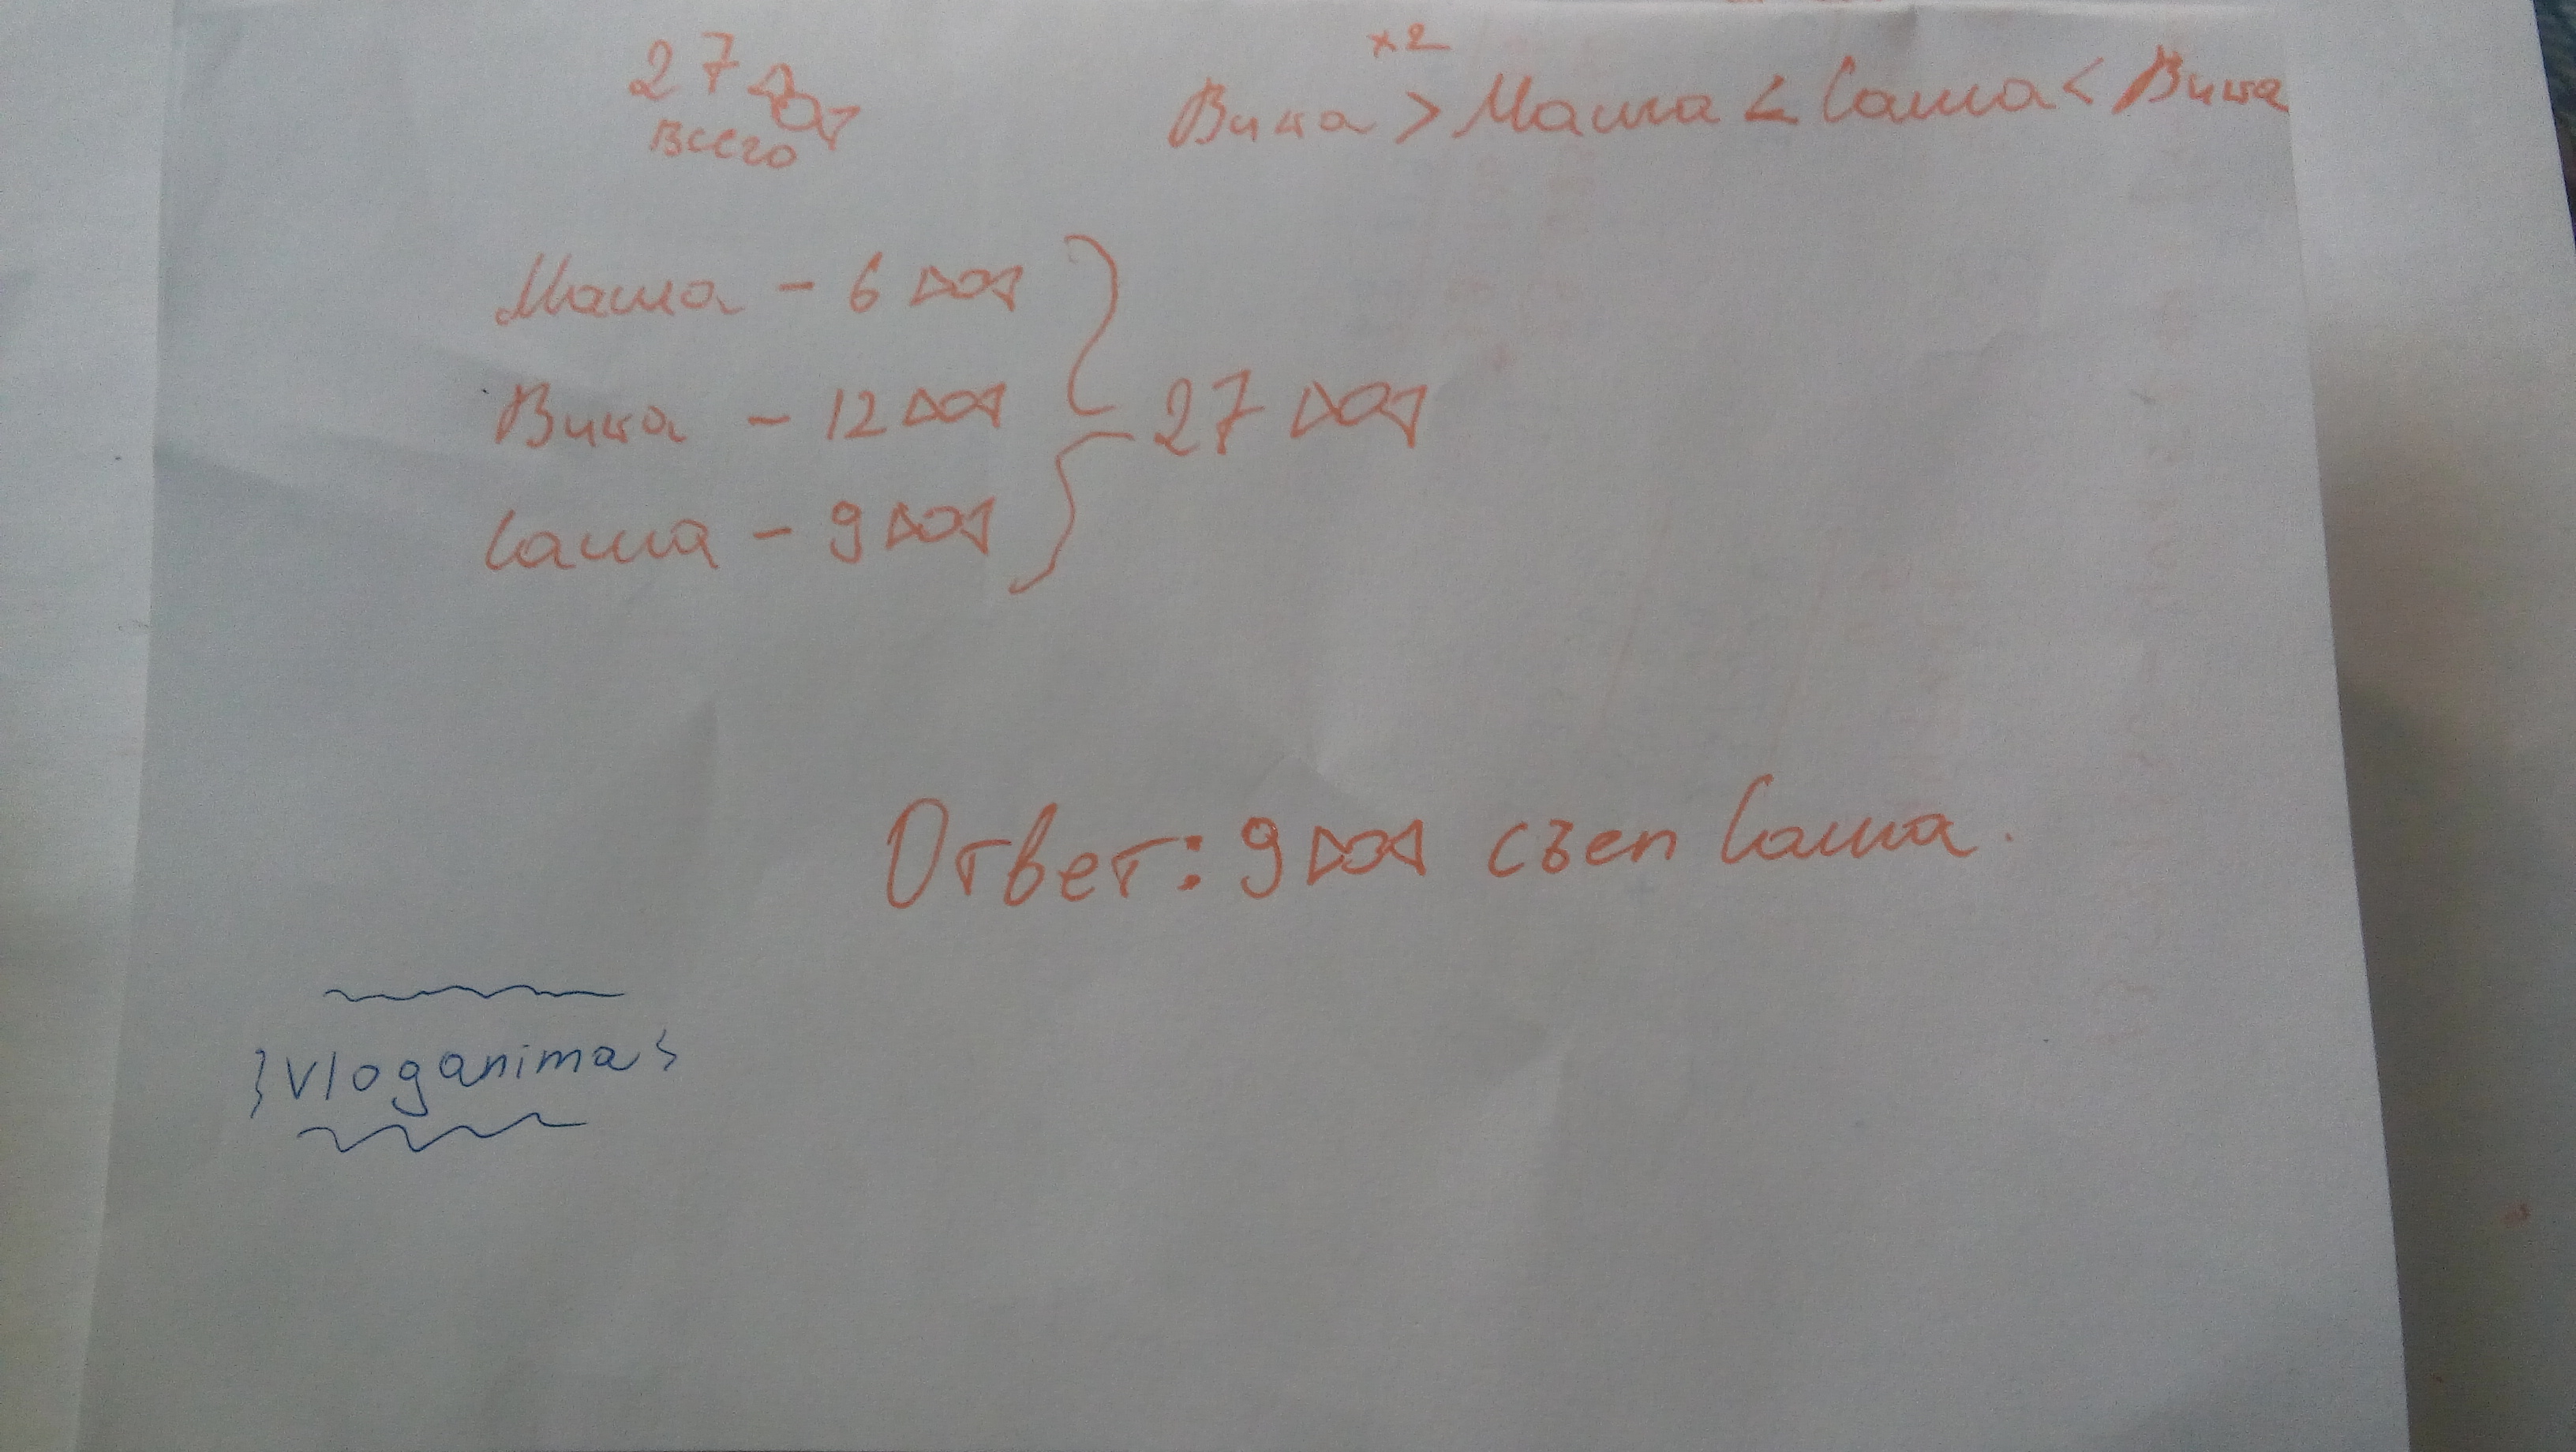 27
всего
x2
Вика > Маша < Саша < Вика
Маша - 6
Вика - 12
Саша - 9
27
Ответ: 9 съел Саша.
vloganima